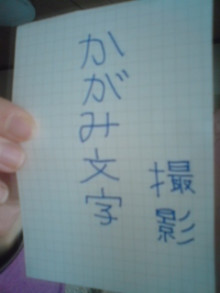 かがみ文字
撮影